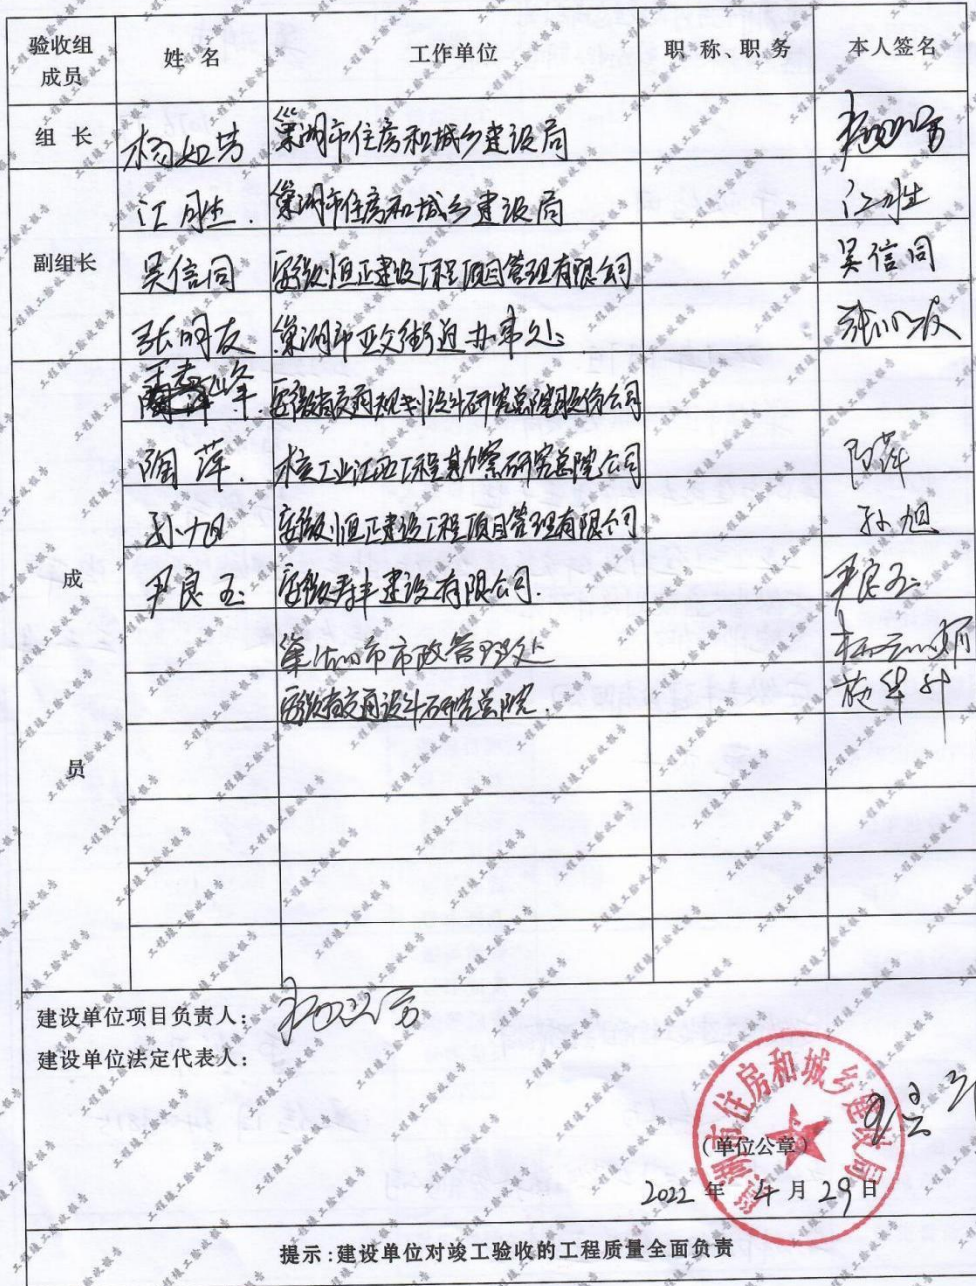 验收组成员 姓 名 工作单位 职 称、职 务 本人签名
组 长 杨如芳 巢湖市住房和城乡建设局
副组长
江月胜 巢湖市住房和城乡建设局 江月胜
吴信同 安徽恒正建设工程项目管理有限公司 吴信同
张明友 巢湖市亚父街道办事处 张明友
成员
安徽省交通规划设计研究总院股份公司
陶萍 核工业江西工程勘察研究总院公司 陶萍
孙旭 安徽恒正建设工程项目管理有限公司 孙旭
尹良玉 安徽寿丰建设有限公司 尹良玉
巢湖市市政管理处
安徽省交通设计研究总院
建设单位项目负责人：
建设单位法定代表人：
巢湖市住房和城乡建设局
（单位公章）
2022 年 4 月 29 日
提示：建设单位对竣工验收的工程质量全面负责
工程竣工验收报告